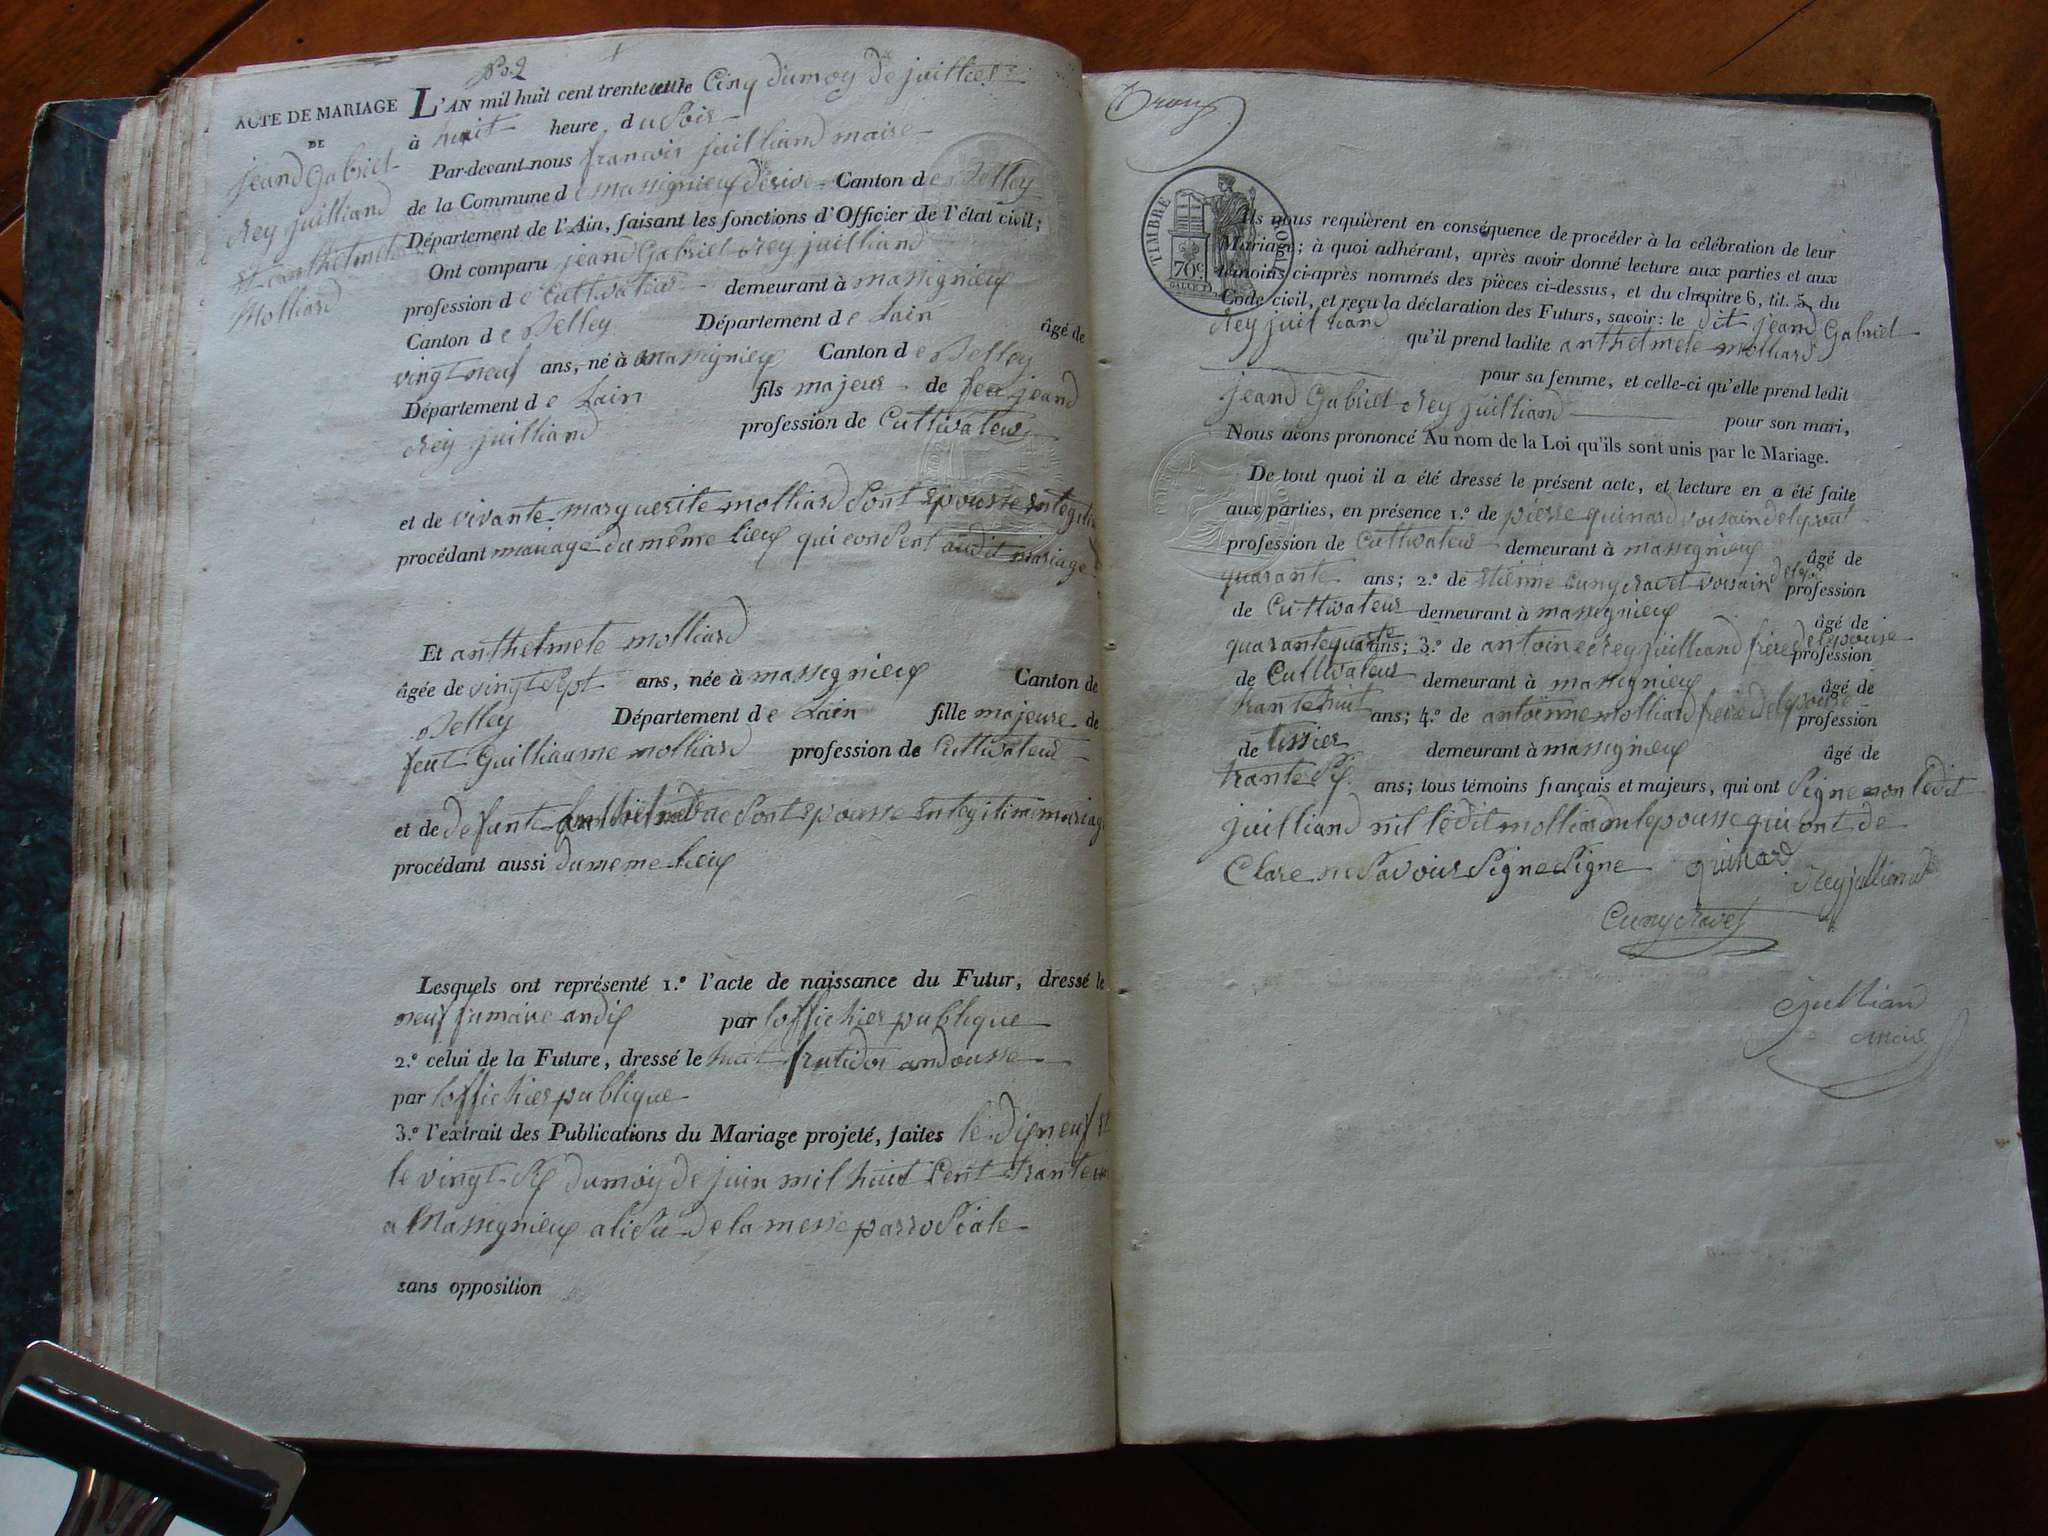 No. 2
ACTE DE MARIAGE
DE
jeand Gabriel
rey juilliand
et anthelmete
Molliard
L'AN mil huit cent trente un le Cinq du moy de juillier
à huit heure du Soir
Par-devant nous francois juilliand maire
de la Commune de massignieux derive Canton de Belley
Département de l'Ain, faisant les fonctions d'Officier de l'état civil;
Ont comparu jeand Gabriel rey juilliand
profession de Cultivateur demeurant à massignieux
Canton de Belley Département de Lain âgé de
vingt neuf ans, né à massignieux Canton de Belley
Département de Lain fils majeur de feu jeand
rey juilliand profession de Cultivateur
et de vivante marguerite molliard Sont epousse en legitime
procédant mariage du même lieux qui consent audit mariage
Et anthelmete molliard
âgée de vingt Sept ans, née à massignieux Canton de
Belley Département de Lain fille majeure de
feut Guilliaume molliard profession de Cultivateur
et de defunte Sont epousse en legitime mariage
procédant aussi du meme lieux
Lesquels ont représenté 1.° l'acte de naissance du Futur, dressé le
neuf fumaire an dix par loffichier publique
2.° celui de la Future, dressé le huit frutidor an dousse
par loffichier publique
3.° l'extrait des Publications du Mariage projeté, faites le dix neuf et
le vingt Six du moiy de juin mil huit Cent trante un
a Massignieux a lisu de la messe parrosiale
sans opposition
TIMBRE ROYAL
70 c.
Ils nous requièrent en conséquence de procéder à la célébration de leur
Mariage; à quoi adhérant, après avoir donné lecture aux parties et aux
témoins ci-après nommés des pièces ci-dessus, et du chapitre 6, tit. 5, du
Code civil, et reçu la déclaration des Futurs, savoir: le dit jeand Gabriel
rey juilliand qu'il prend ladite anthelmete molliard
pour sa femme, et celle-ci qu'elle prend ledit
jeand Gabriel rey juilliand pour son mari,
Nous avons prononcé Au nom de la Loi qu'ils sont unis par le Mariage.
De tout quoi il a été dressé le présent acte, et lecture en a été faite
aux parties, en présence 1.° de pierre quinard voisain delepout
profession de Cultivateur demeurant à massignieux âgé de
quarante ans; 2.° de etienne cuny ravet voisain profession
de Cultivateur demeurant à massignieux âgé de
quarante quatre ans; 3.° de antoine rey juilliand frere delepouse profession
de Cultivateur demeurant à massignieux âgé de
trante huit ans; 4.° de antoinne molliard frere delepouse profession
de tissier demeurant à massignieux âgé de
trante Six ans; tous témoins français et majeurs, qui ont Signe non ledit
juilliand nil ledit molliard ni lepousse qui ont de
Clare ne Savoir Signe Signe quinard Reyjullien
Cuny Ravet
Julliand
maire